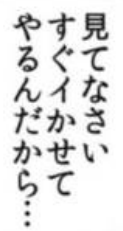 見てなさい
すぐイかせて
やるんだから…